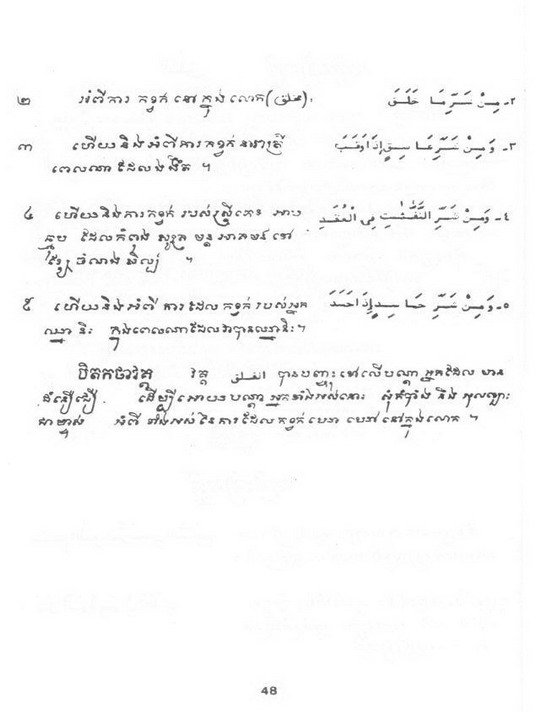 ២ អំពីការ កខ្វក់ នៅ ក្នុង លោក (خلق). ٢- مِنْ شَرِّ مَا خَلَقَ
៣ ហើយនិងអំពីការកខ្វក់ នារាត្រី ٣- وَمِنْ شَرِّ غَاسِقٍ إِذَا وَقَبَ
ពេលណា ដែលងងឹត ។
៤ ហើយនិងការកខ្វក់ របស់ស្ត្រីគេ ٤- وَمِنْ شَرِّ النَّفّٰثٰتِ فِى الْعُقَدِ
ដែលកំពុង សូត្រ មន្ត អាគមន៍ ទៅ
ចំណង ។
៥ ហើយនិងអំពី ការដែលកខ្វក់ របស់អ្នក ٥- وَمِنْ شَرِّ حَاسِدٍ إِذَا حَسَدَ
ឈ្នានិះ ក្នុងពេលណាដែលវាបានឈ្នានិះ។
បិតកថាវគ្គ វគ្គ الفلق បានបញ្ជុះទៅលើបណ្ដា អ្នកដែល មាន
ជំនឿជឿ. ដើម្បីអោយបណ្ដាអ្នកទាំងអស់នោះ សុំ និង អុលឡោះ
ជាម្ចាស់ អំពី ទាំងអស់ នៃការដែលកខ្វក់ នៅក្នុងលោក ។
48